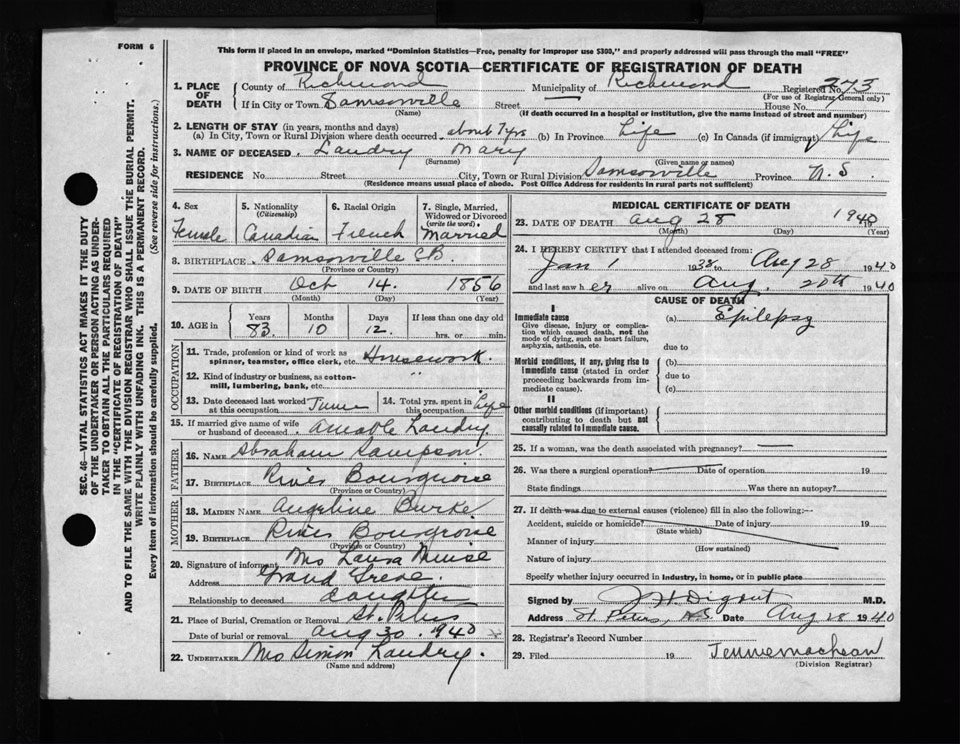 FORM 6
This form if placed in an envelope, marked "Dominion Statistics—Free, penalty for improper use $300," and properly addressed will pass through the mail "FREE"
PROVINCE OF NOVA SCOTIA—CERTIFICATE OF REGISTRATION OF DEATH
1. PLACE OF DEATH County of Richmond Municipality of Richmond Registered No. 273
(For use of Registrar-General only)
If in City or Town Samsonville Street House No.
(Name) (If death occurred in a hospital or institution, give the name instead of street and number)
2. LENGTH OF STAY (in years, months and days)
(a) In City, Town or Rural Division where death occurred about 7 yrs (b) In Province Life (c) In Canada (if immigrant) Life
3. NAME OF DECEASED Landry Mary
(Surname) (Given name or names)
RESIDENCE No. Street City, Town or Rural Division Samsonville Province N.S.
(Residence means usual place of abode. Post Office Address for residents in rural parts not sufficient)
4. Sex Female
5. Nationality (Citizenship) Canadian
6. Racial Origin French
7. Single, Married, Widowed or Divorced (write the word) Married
8. BIRTHPLACE Samsonville C.B.
(Province or Country)
9. DATE OF BIRTH Oct 14. 1856
(Month) (Day) (Year)
10. AGE in Years Months Days If less than one day old
83 10 12 hrs. or min.
OCCUPATION
11. Trade, profession or kind of work as spinner, teamster, office clerk, etc. Housework.
12. Kind of industry or business, as cotton-mill, lumbering, bank, etc. "
13. Date deceased last worked at this occupation June
14. Total yrs. spent in this occupation Life
15. If married give name of wife or husband of deceased Amable Landry
FATHER
16. NAME Abraham Sampson.
17. BIRTHPLACE River Bourgeoise
(Province or Country)
MOTHER
18. MAIDEN NAME Angeline Burke
19. BIRTHPLACE River Bourgeoise
(Province or Country)
20. Signature of informant Mrs Laura Muise
Address Grand Greve.
Relationship to deceased daughter
21. Place of Burial, Cremation or Removal St. Peters
Date of burial or removal Aug 30 1940
22. UNDERTAKER Mrs Simon Landry.
(Name and address)
MEDICAL CERTIFICATE OF DEATH
23. DATE OF DEATH Aug 28 1940
(Month) (Day) (Year)
24. I HEREBY CERTIFY that I attended deceased from:
Jan 1 1938 to Aug 28 1940
and last saw her alive on Aug. 20th 1940
CAUSE OF DEATH
I
Immediate cause (a) Epilepsy
Give disease, injury or complication which caused death, not the mode of dying, such as heart failure, asphyxia, asthenia, etc.
due to
Morbid conditions, if any, giving rise to immediate cause (stated in order proceeding backwards from immediate cause).
(b)
due to
(c)
II
Other morbid conditions (if important) contributing to death but not causally related to immediate cause.
25. If a woman, was the death associated with pregnancy? —
26. Was there a surgical operation? Date of operation 19
State findings Was there an autopsy?
27. If death was due to external causes (violence) fill in also the following:—
Accident, suicide or homicide? Date of injury 19
(State which)
Manner of injury
(How sustained)
Nature of injury
Specify whether injury occurred in industry, in home, or in public place
Signed by J. H. Digout M.D.
Address St. Peters, N.S. Date Aug 28 1940
28. Registrar's Record Number
29. Filed 19 Jennie MacLean
(Division Registrar)
SEC. 46—VITAL STATISTICS ACT MAKES IT THE DUTY
OF THE UNDERTAKER OR PERSON ACTING AS UNDER-
TAKER TO OBTAIN ALL THE PARTICULARS REQUIRED
IN THE "CERTIFICATE OF REGISTRATION OF DEATH"
AND TO FILE THE SAME WITH THE DIVISION REGISTRAR WHO SHALL ISSUE THE BURIAL PERMIT.
WRITE PLAINLY WITH UNFADING INK. THIS IS A PERMANENT RECORD.
Every item of information should be carefully supplied. (See reverse side for instructions.)